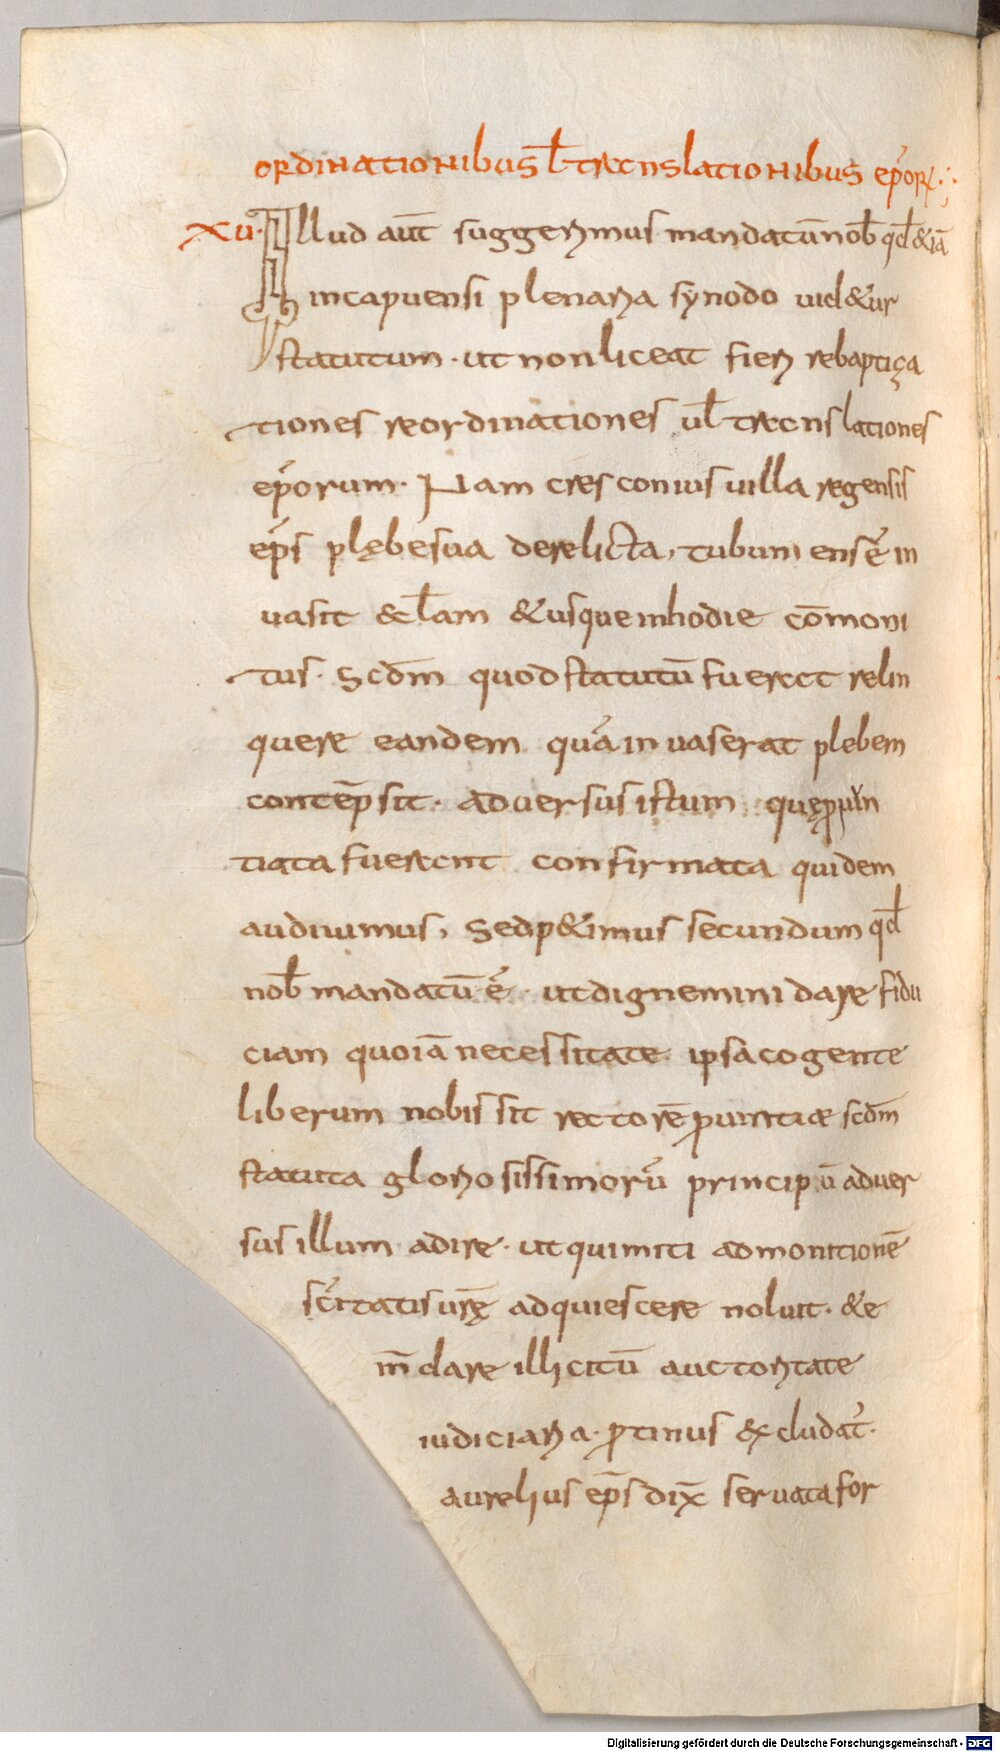 ordinationibus ł translationibus ep̄orꝝ
xv. Illud aūt suggerimus mandatū nob̄ qđ &iā
incapuensi plenaria synodo uid&ur
statutum · ut non liceat fieri rebaptiza
tiones reordinationes ul̄ translationes
ep̄orum · Nam cresconius uilla regensis
ep̄s plębe sua derelicta, tubuniensē in
uasit ęcl̄am & usque in hodie cōmoni
tus · Scd̄m quod statutū fuerat relin
quere eandem quā inuaserat plebem
contēpsit · aduersus istum quę ꝓnun
tiata fuerant confirmata quidem
audiuimus, sed p&imus secundum qđ
nob̄ mandatū ē · ut dignemini dare fidu
ciam quo iā necessitate ipsa cogente
liberum nobis sit rectorē ꝓuintiæ scd̄m
statuta gloriosissimorū principū aduer
sus illum adire · ut qui miti admonitionē
sc̄itatis ur̄ę adquiescere noluit · & e
m̄dare illicitū auctoritate
iudiciaria · ꝓtinus &xcludat̄ ·
aurelius ep̄s dix̄ seruata for
Digitalisierung gefördert durch die Deutsche Forschungsgemeinschaft - DFG